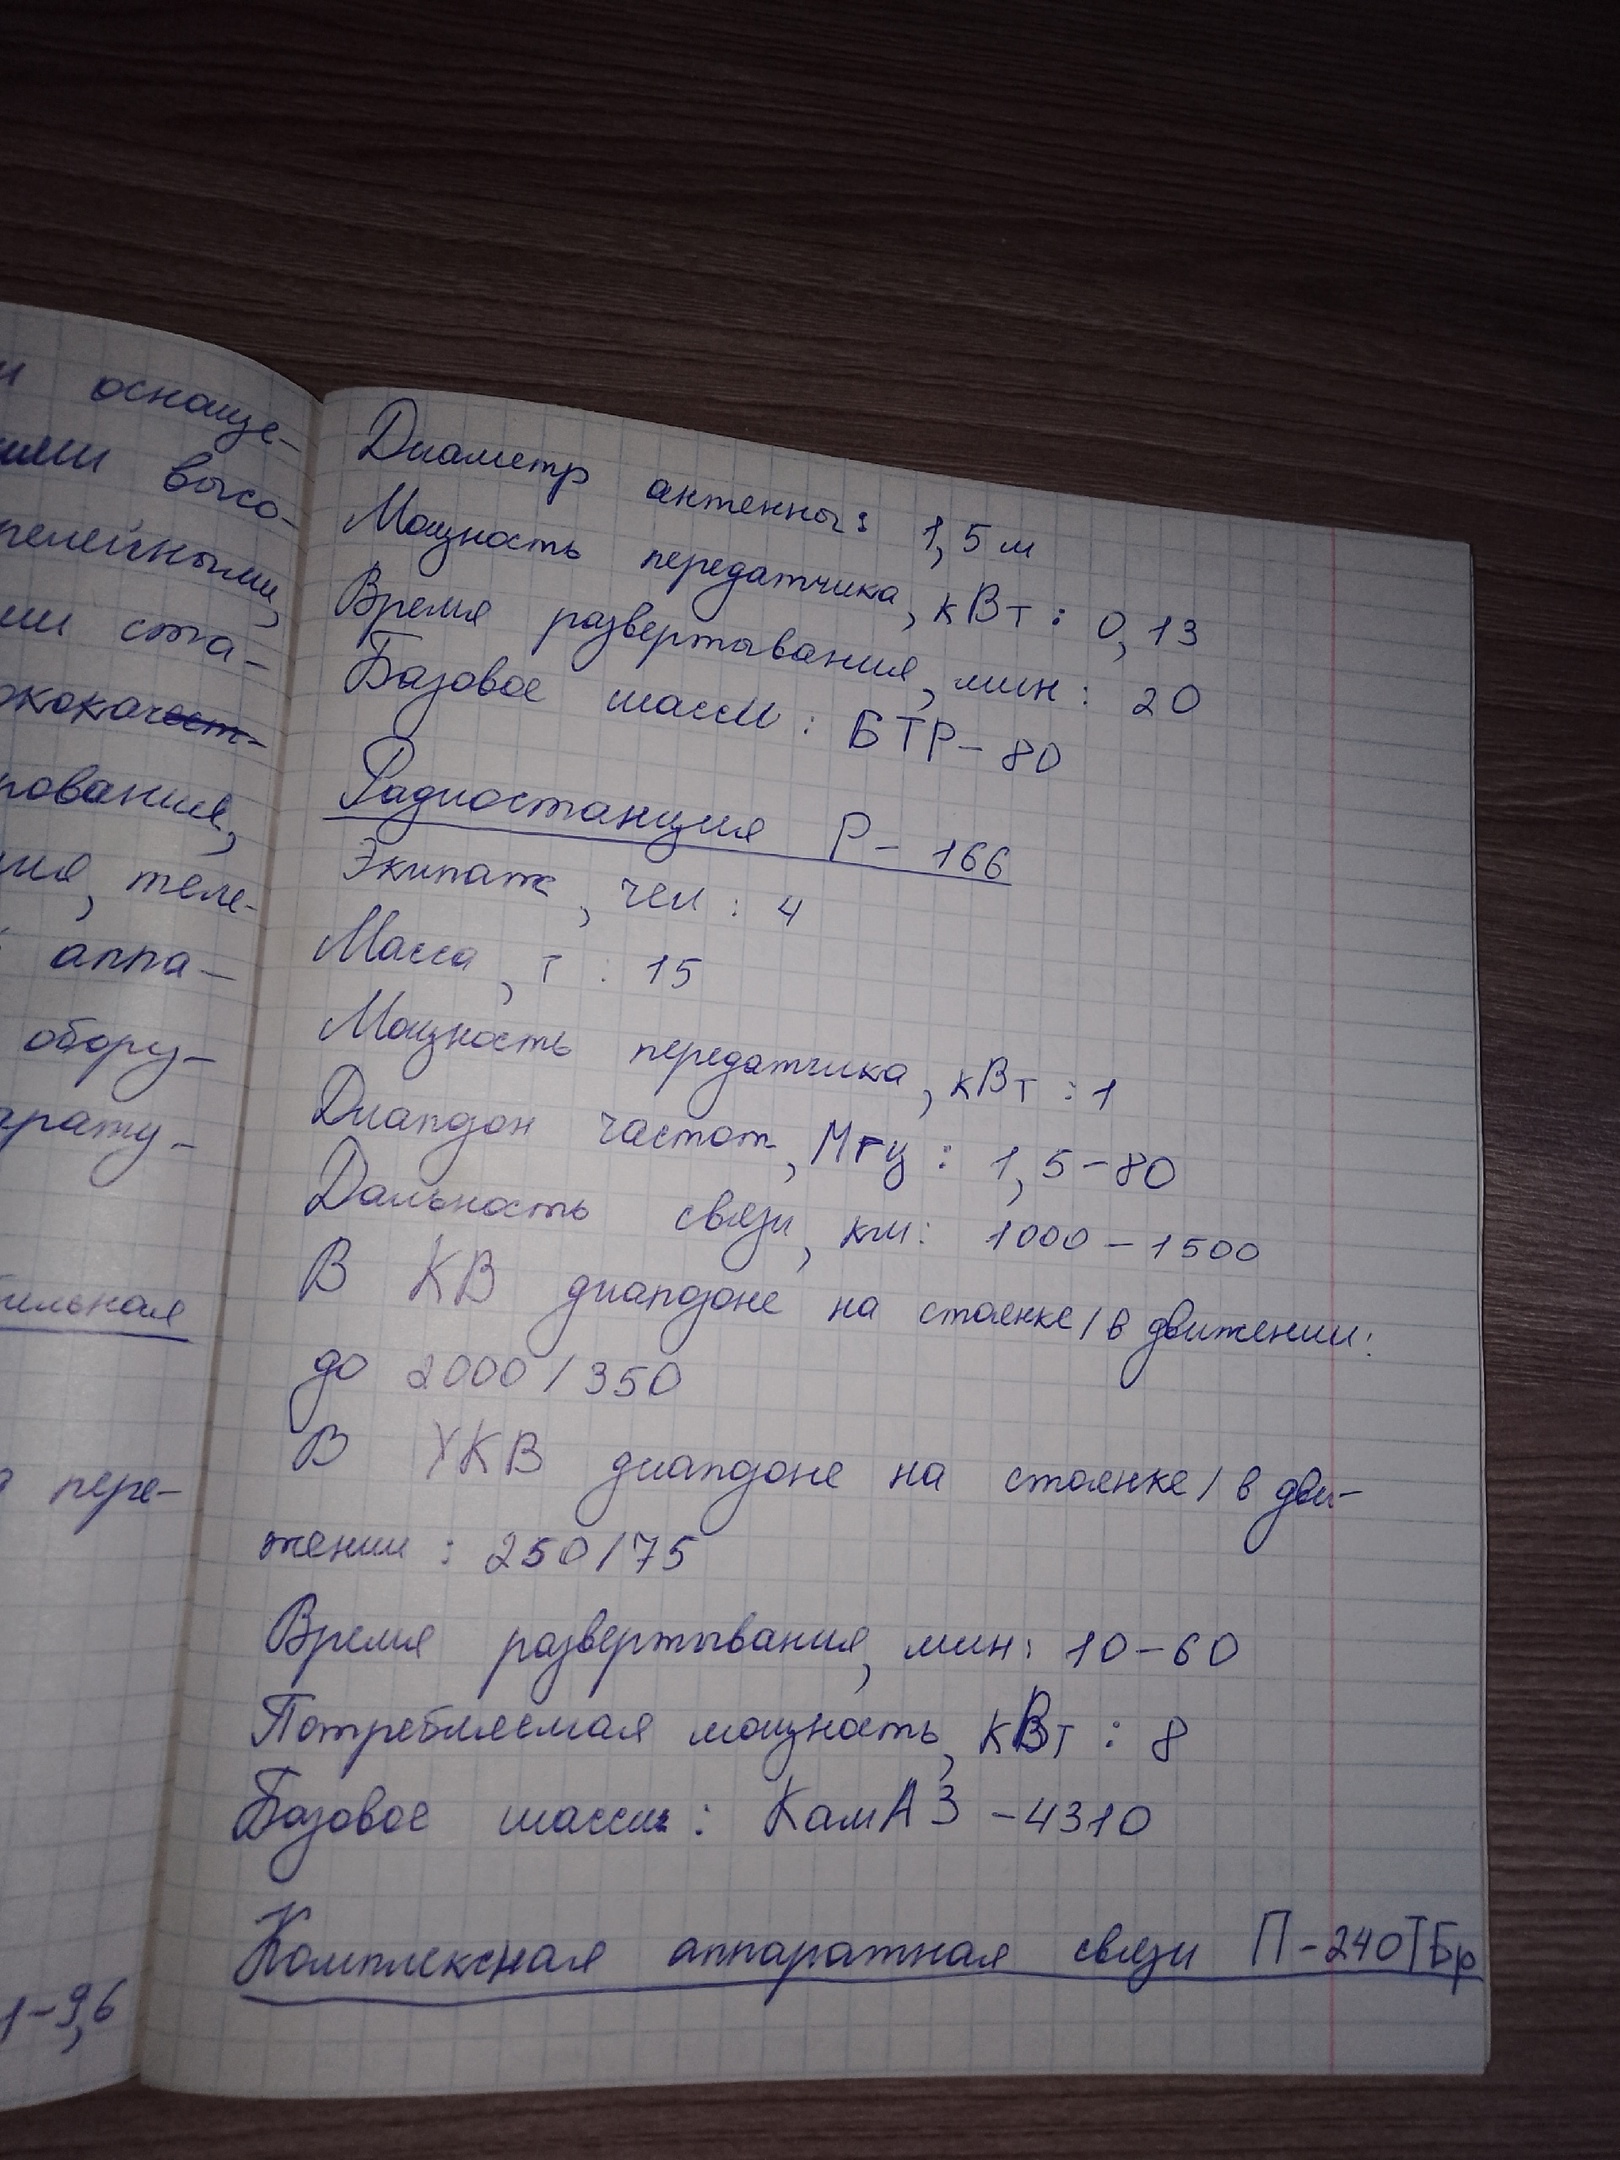 оснаще-
высо-
ста-
теле-
аппа-
обору-
пере-
Диаметр антенны: 1,5 м
Мощность передатчика, кВт: 0,13
Время развертывания, мин: 20
Базовое шасси: БТР-80
Радиостанция Р-166
Экипаж, чел: 4
Масса, т: 15
Мощность передатчика, кВт: 1
Диапазон частот, Мгц: 1,5-80
Дальность связи, км: 1000-1500
В КВ диапазоне на стоянке/в движении:
до 2000/350
В УКВ диапазоне на стоянке/в дви-
жении: 250/75
Время развертывания, мин: 10-60
Потребляемая мощность, кВт: 8
Базовое шасси: КамАЗ-4310
Комплексная аппаратная связи П-240ТБр